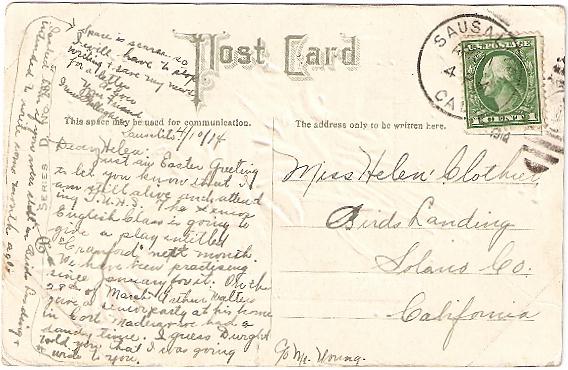 Post Card
This space may be used for communication.
The address only to be written here.
SAUSALITO
CAL
U.S. POSTAGE
1 CENT 1
Sausalito 4/10/14
Dear Helen:
Just an Easter Greeting
to let you know that I
am still alive and attend
ing T.U.H.S. The Senior
English Class is going to
give a play entitled
"Cranford" next month.
We have been practising
since January for it. On the
28th of March Arthur Walters
gave a senior party at his home
in Corte Madera we had a
dandy time. I guess Dwight
told you that I was going
to write to you.
intended to write some months ago.
Space is scarce so
I will have to stop
writing & save my news
for a letter
Your Friend
Miss Helen Clothier,
Birds Landing
Solano Co.
California
C/o Mr. Young.
SERIES D NO.